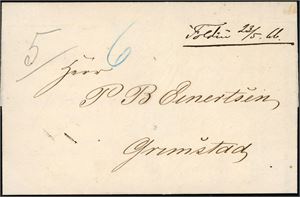 Foldin 23/5 66.
5/ 6
Herr
P B Eenertsen
Grimstad